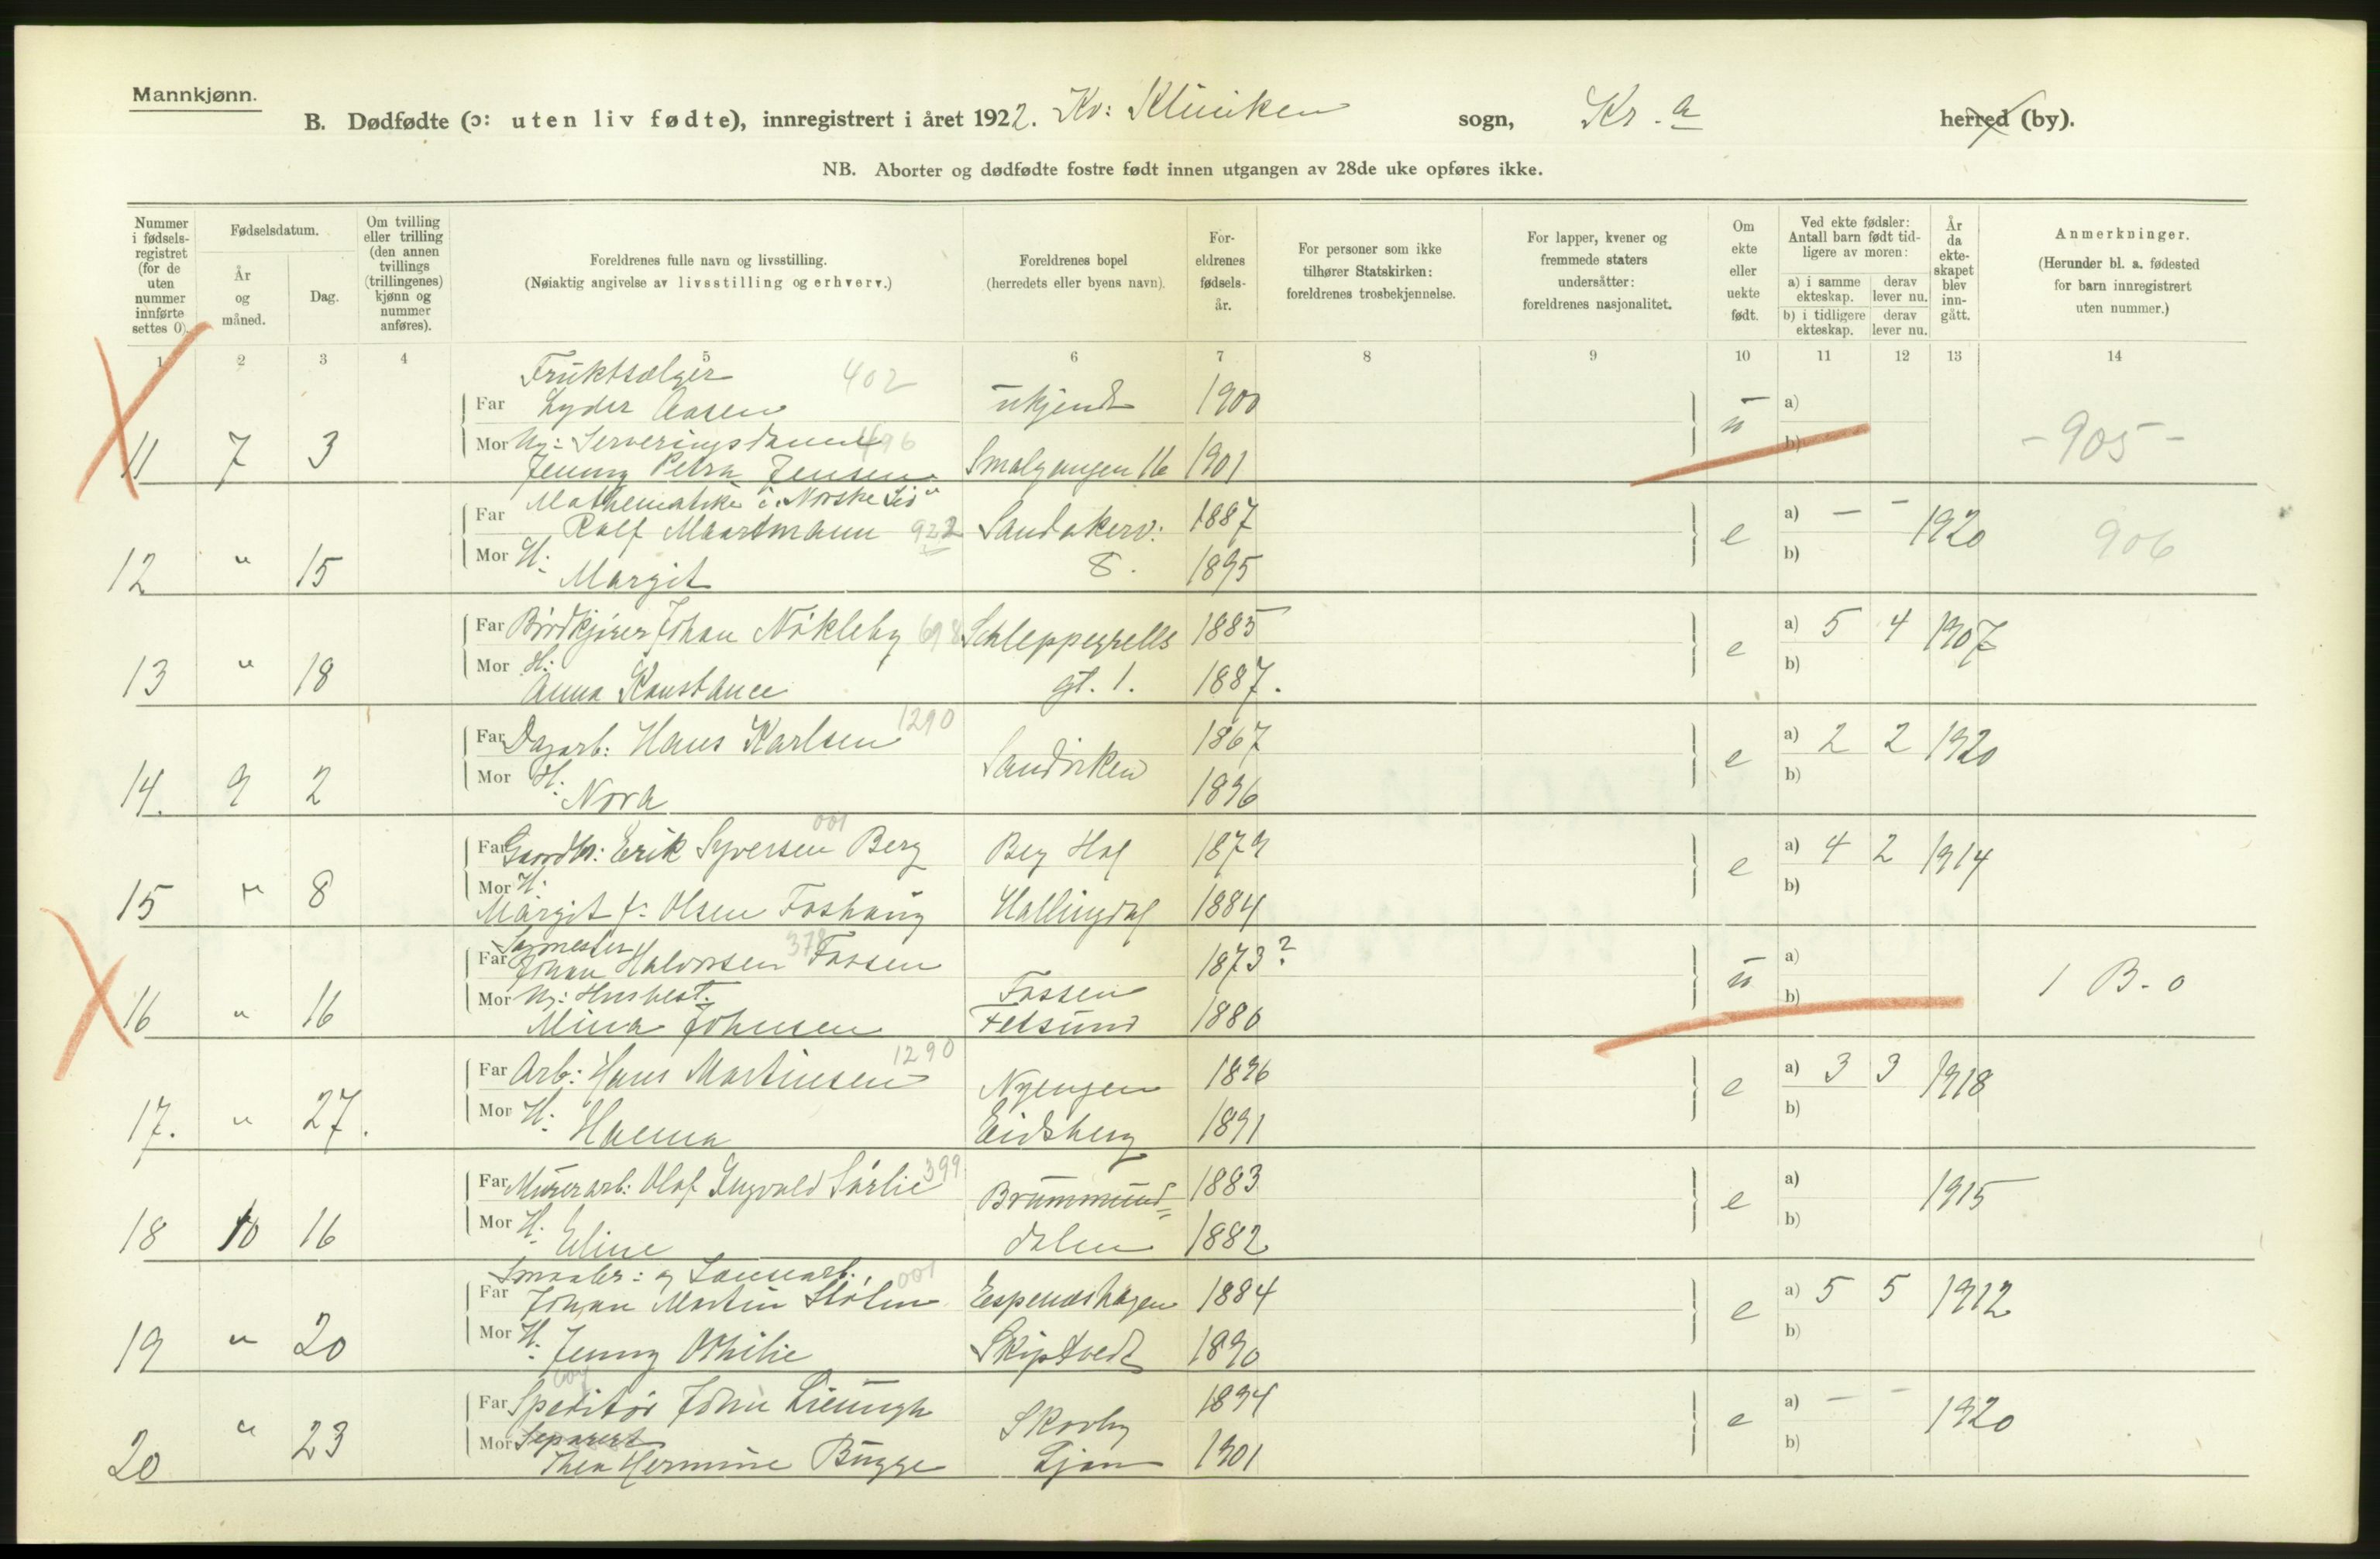 Mannkjønn.
B. Dødfødte (ɔ: uten liv fødte), innregistrert i året 1922. Kv: Kliniken sogn, Kr.a herred (by).
NB. Aborter og dødfødte fostre født innen utgangen av 28de uke opføres ikke.
Nummer i fødsels-registret (for de uten nummer innførte settes 0).
Fødselsdatum.
År og måned.
Dag.
Om tvilling eller trilling (den annen tvillings (trillingenes) kjønn og nummer anføres).
Foreldrenes fulle navn og livsstilling.
(Nøiaktig angivelse av livsstilling og erhverv.)
Foreldrenes bopel
(herredets eller byens navn).
For-eldrenes fødsels-år.
For personer som ikke tilhører Statskirken: foreldrenes trosbekjennelse.
For lapper, kvener og fremmede staters undersåtter: foreldrenes nasjonalitet.
Om ekte eller uekte født.
Ved ekte fødsler: Antall barn født tid-ligere av moren:
a) i samme ekteskap. derav lever nu.
b) i tidligere ekteskap. derav lever nu.
År da ekte-skapet blev inn-gått.
Anmerkninger.
(Herunder bl. a. fødested for barn innregistrert uten nummer.)
1 2 3 4 5 6 7 8 9 10 11 12 13 14
Fruktsælger 402
Far Lyder Aasen ukjendt 1900 a)
11 7 3 Mor Ug: Serveringsdame 496 u b) -905-
Jenny Petra Jensen Smalgangen 16 1901
Mathematike i "Norske Liv"
Far Rolf Maartmann 922 Sandakerv: 1887 a) — — 1920
12 " 15 Mor H: Margit 8. 1895 e b) 906
Far Brødkjører Johan Nökleby 698 Schleppegrells 1885 a) 5 4 1907
13 " 18 Mor H: Anna Konstance gt. 1. 1887. e b)
Far Dagarb: Hans Karlsen 1290 Sandviken 1867 a) 2 2 1920
14. 9 2 Mor H: Nora 1896 e b)
001
Far Gaardbr: Erik Syversen Berg Berg Hol 1879 a) 4 2 1914
15 " 8 Mor H: Margit f: Olsen Foshaug Hallingdal 1884 e b)
Sagmester 378
Far Johan Halvorsen Fossen 1873? a)
16 " 16 Mor Ug: Husbest. Fossen u b) 1 B. 0
Mina Johnsen Fetsund 1886
Far Arb: Hans Martinsen 1290 Nyengen 1896 a) 3 3 1918
17. " 27. Mor H: Hanna Eidsberg 1891 e b)
Far Murerarb: Olaf Ingvald Sörlie 399 Brummund= 1883 a) 1915
18 10 16 Mor H: Eline dalen 1882 e b)
Smaabr: og 001
Far Johan Martin Espenæshagen 1884 a) 5 5 1912
19 " 20 Mor H: Jenny Othilie Skiptvedt 1890 e b)
Far Speditör 1894 a) — — 1920
20 " 23 Mor Separert Skovby e b)
Thea Hermine Bugge Ljan 1901